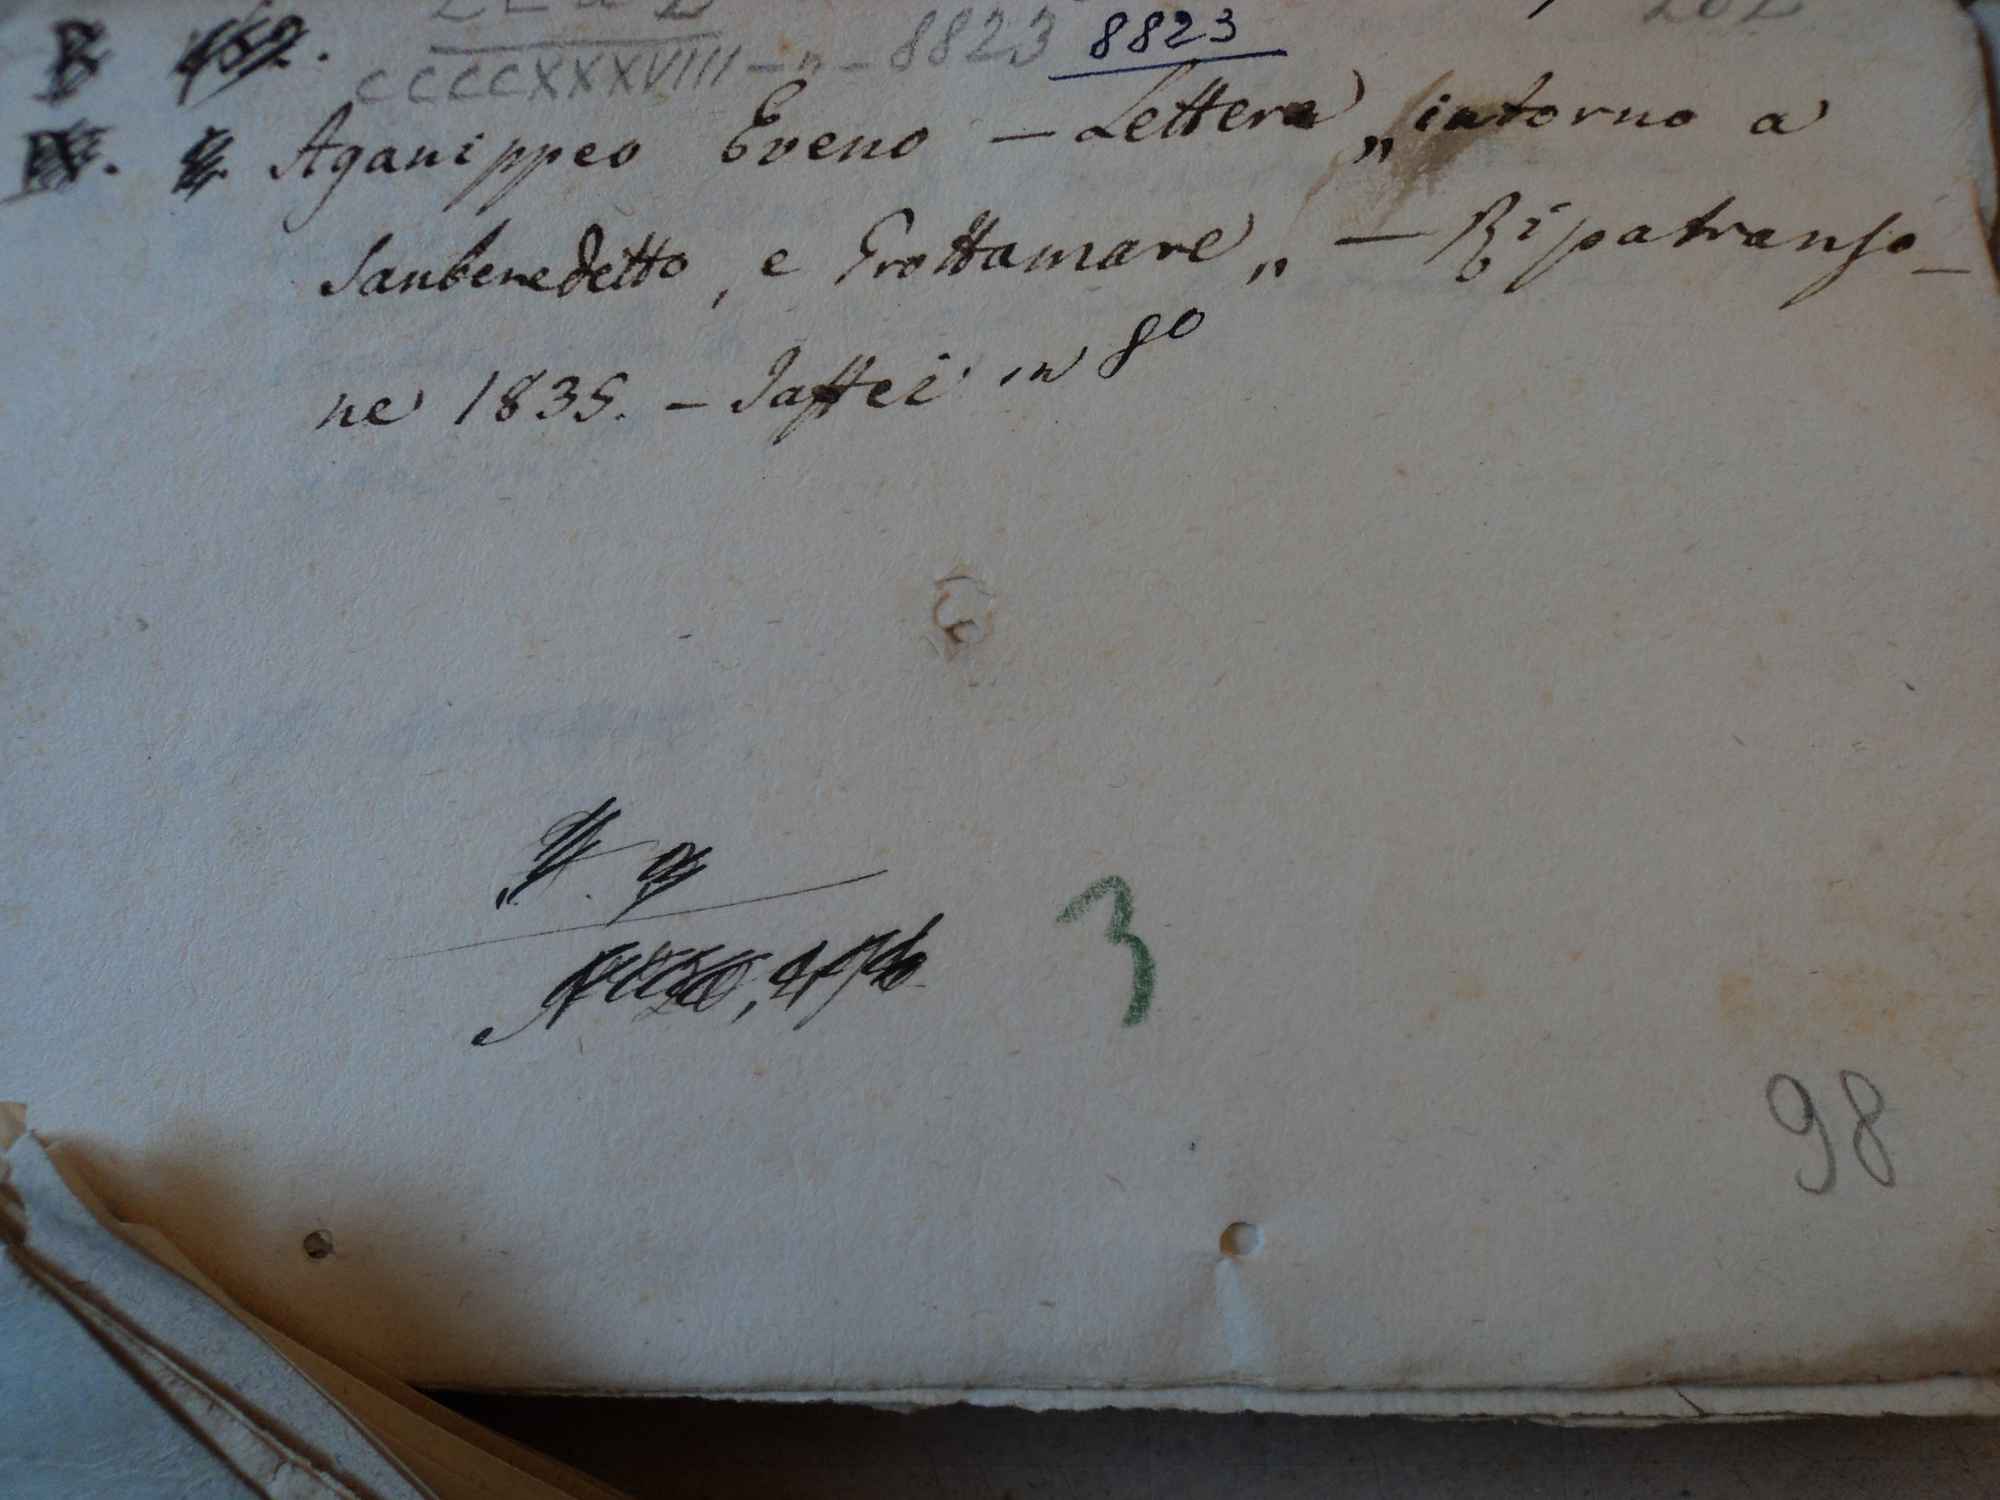 CCCCXXXVIII - n - 8823 8823
Aganippeo Eveno - Lettera „ intorno a
Sanbenedetto, e Grottamare „ - Ripatranso-
ne 1835. - Jaffei in 8º
3
98